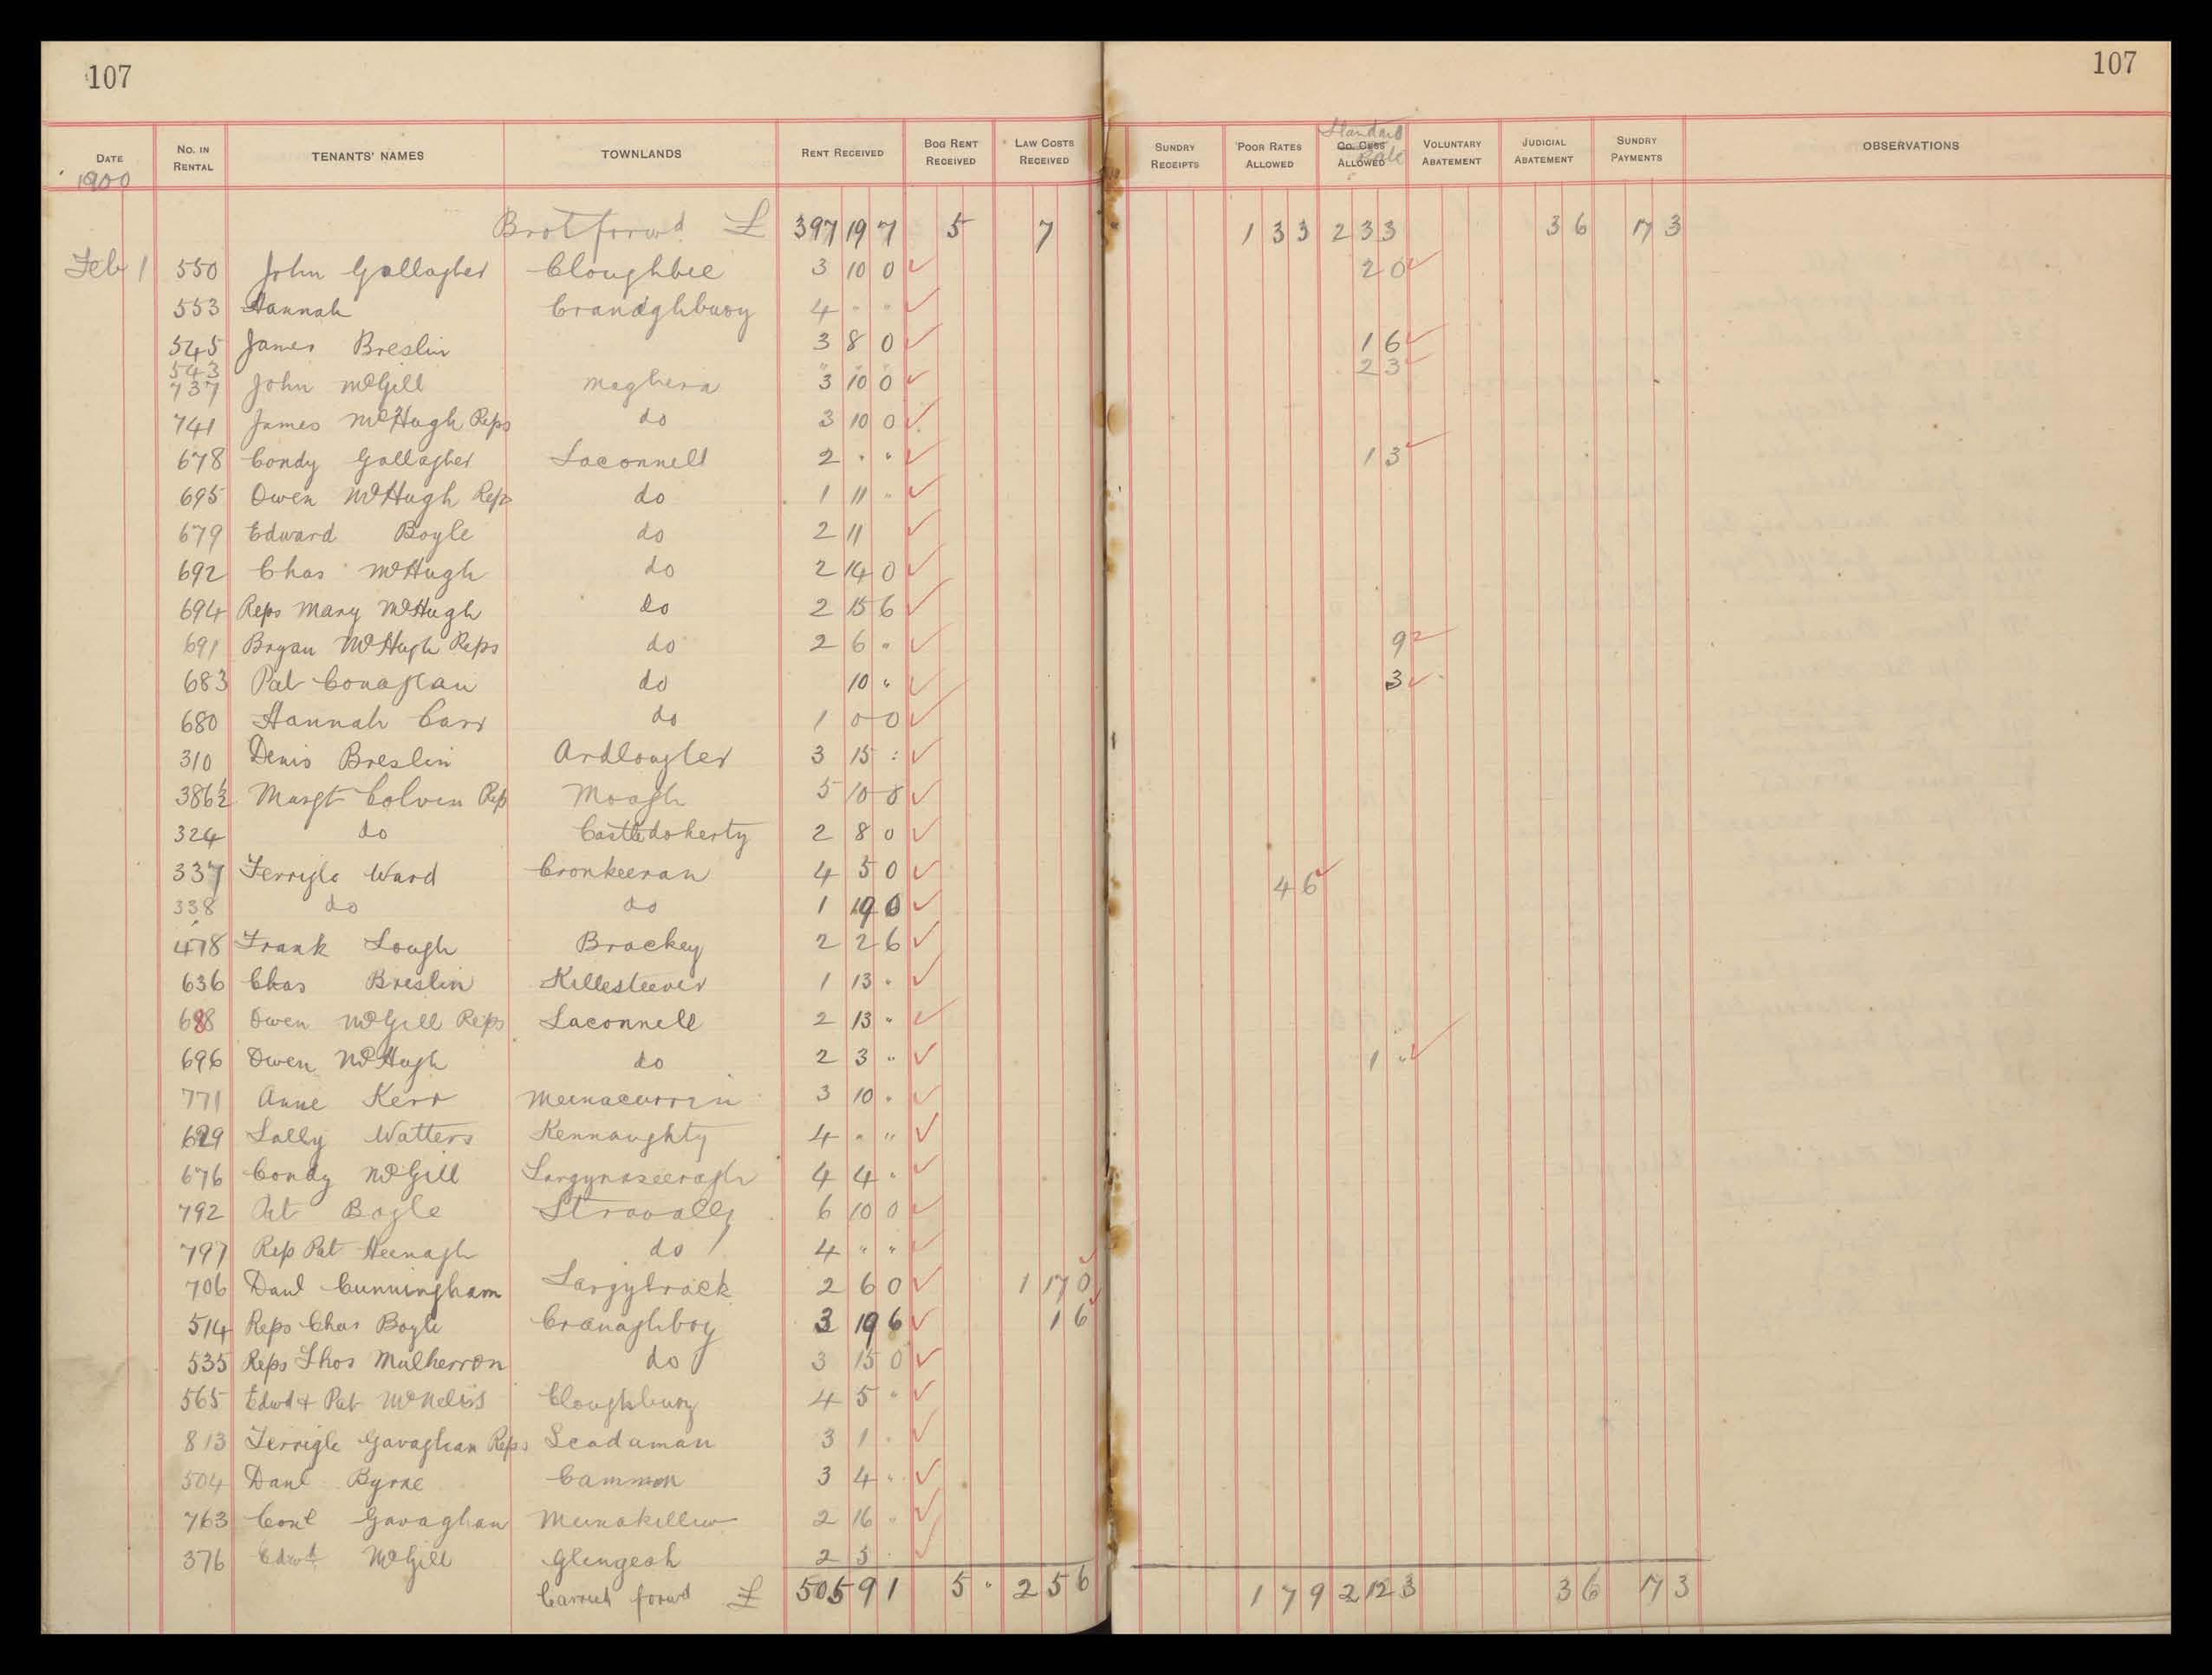 107 107
DATE No. IN RENTAL TENANTS' NAMES TOWNLANDS RENT RECEIVED BOG RENT RECEIVED LAW COSTS RECEIVED SUNDRY RECEIPTS POOR RATES ALLOWED CO. CESS ALLOWED Standard Rate VOLUNTARY ABATEMENT JUDICIAL ABATEMENT SUNDRY PAYMENTS OBSERVATIONS
1900
Brot forwd £ 397 19 7 5 7 1 3 3 2 3 3 3 6 17 3
Feb 1 550 John Gallagher Cloughbee 3 10 0 2 0
553 Hannah 4 " "
545 James Breslin 3 8 0 1 6
543 2 3
737 John McGill Maghera 3 10 0
741 James McHugh Reps do 3 10 0
678 Condy Gallagher Laconnell 2 " " 1 3
695 Owen McHugh Reps do 1 11 "
679 Edward Boyle do 2 11
692 Chas McHugh do 2 14 0
694 Reps Mary McHugh do 2 15 6
691 Bryan McHugh Reps do 2 6 " 9
683 Pat Conaghan do 10 " 3
680 Hannah Carr do 1 0 0
310 Denis Breslin Ardlougher 3 15 :
386½ Margt Colven Rep Moagh 5 10 8
324 do Castledoherty 2 8 0
337 Ferrigle Ward Cronkeeran 4 5 0 4 6
338 do do 1 19 0
478 Frank Lough Brackey 2 2 6
636 Chas Breslin Killesteever 1 13 "
688 Owen McGill Reps Laconnell 2 13 "
696 Owen McHugh do 2 3 " 1 "
771 Anne Kerr Meenacurrin 3 10 "
629 Sally Watters Kennaughty 4 " "
676 Condy McGill Largynaseeragh 4 4 "
792 Pat Boyle Stravally 6 10 0
797 Rep Pat Heenagh do 4 " "
706 Danl Cunningham Largybrack 2 6 0 1 17 0
514 Reps Chas Boyle Cranaghboy 3 19 6 1 6
535 Reps Thos Mulherron do 3 15 0
565 Edwd & Pat McNelis Cloughbuoy 4 5 "
813 Ferrigle Gavaghan Reps Scadaman 3 1 "
504 Danl Byrne Cammon 3 4 "
763 Conl Gavaghan Meenakillew 2 16 "
376 Edwd McGill Glengesh 2 5
Carried forwd £ 505 9 1 5 " 2 5 6 1 7 9 2 12 3 3 6 17 3